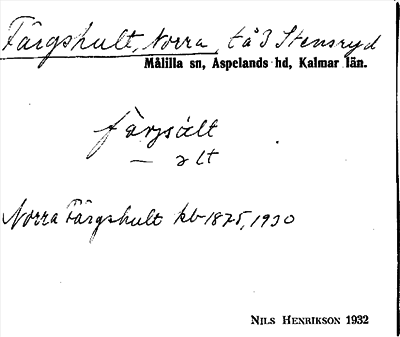 Färgshult, Norra, tå 3 Stensryd
Målilla sn, Aspelands hd, Kalmar län.
Norra Färgshult kb 1875, 1930
NILS HENRIKSON 1932